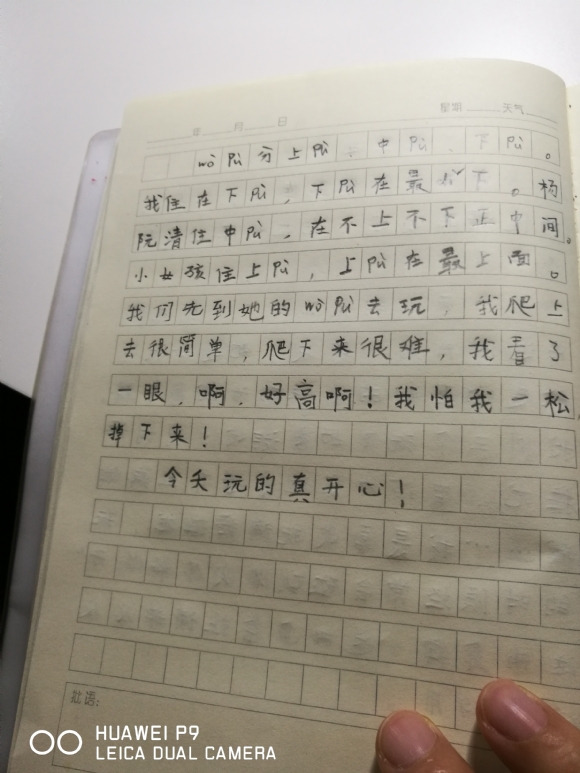 年 月 日 星期 天气
wò pù 分上 pù 、中 pù 、下 pù 。
我住在下 pù ，下 pù 在最下。杨
阮清住中 pù ，在不上不下正中间。
小女孩住上 pù ，上 pù 在最上面。
我们先到她的 wò pù 去玩，我爬上
去很简单，爬下来很难，我看了
一眼，啊，好高啊！我怕我一松
掉下来！
今天玩的真开心！
批语：
HUAWEI P9
LEICA DUAL CAMERA